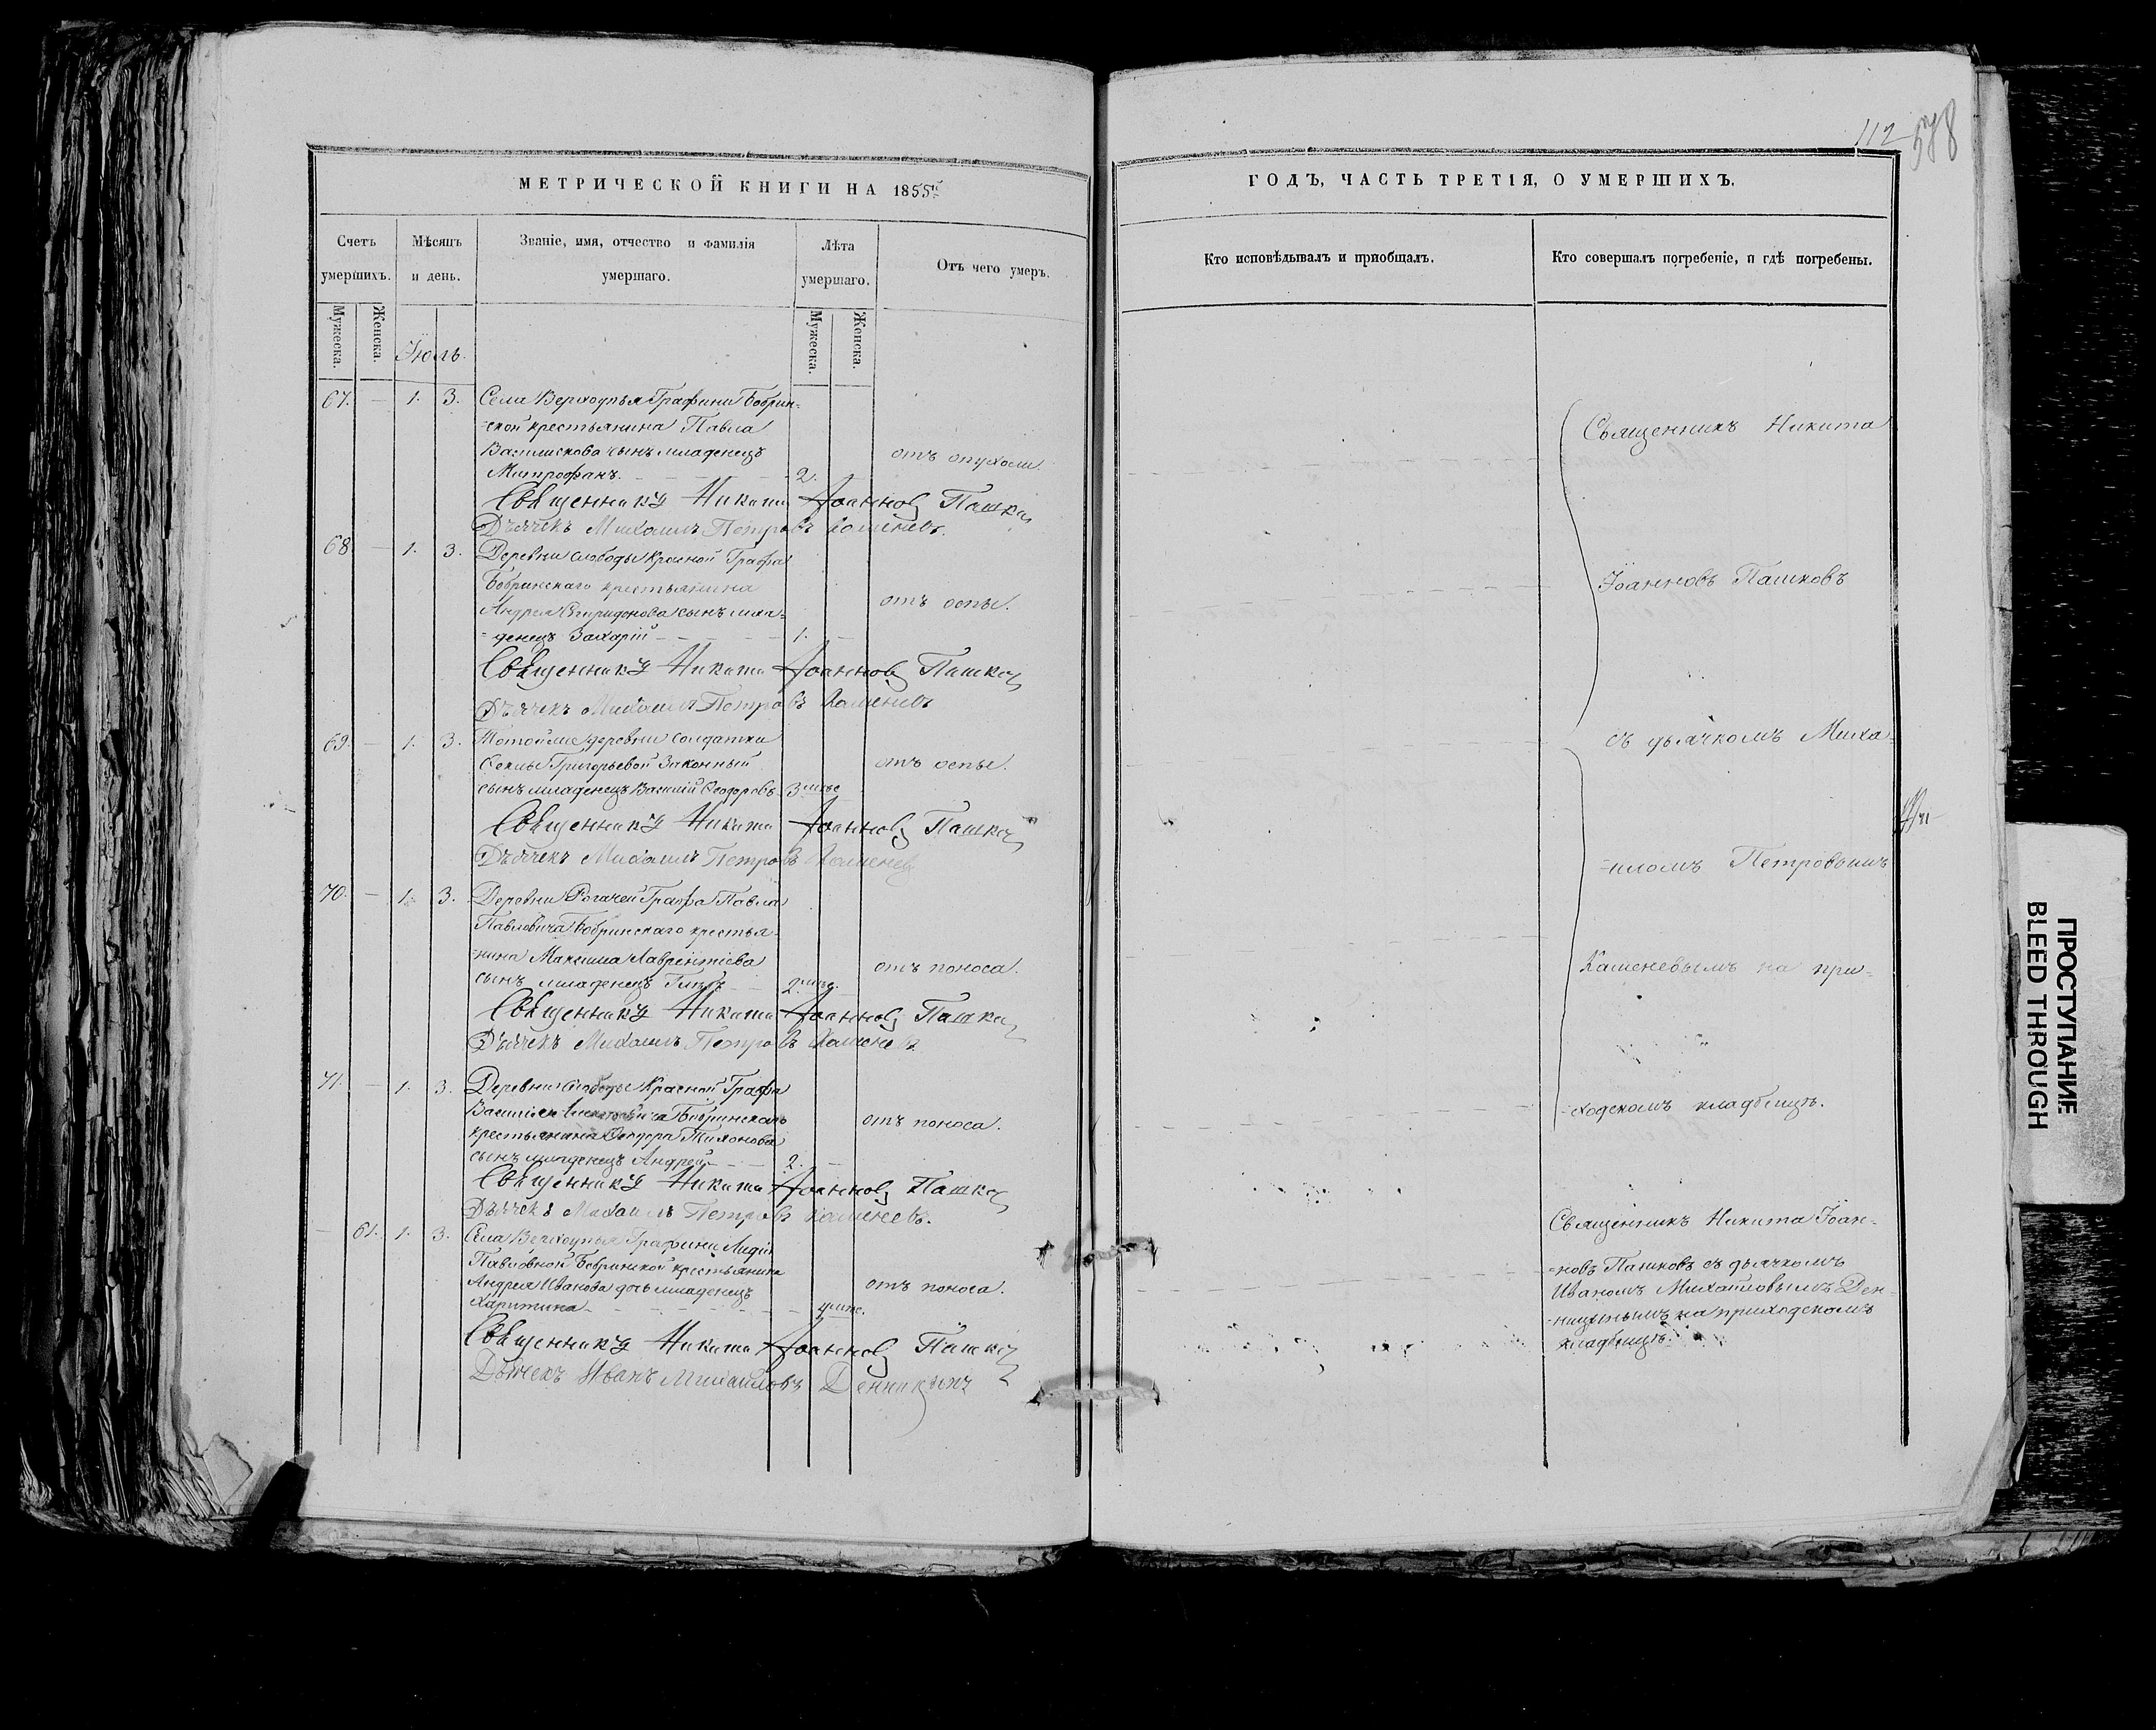 112
578
МЕТРИЧЕСКОЙ КНИГИ НА 1855й
ГОДЪ, ЧАСТЬ ТРЕТІЯ, О УМЕРШИХЪ.
Счетъ умершихъ.
Мѣсяцъ и день.
Званіе, имя, отчество и фамилія умершаго.
Лѣта умершаго.
Отъ чего умеръ.
Кто исповѣдывалъ и приобщалъ.
Кто совершалъ погребеніе, и гдѣ погребены.
Мужеска.
Женска.
Мужеска.
Женска.
Іюль.
67. — 1. 3. Села Верхоупья Графини Бобрин-
-ской крестьянина Павла
сынъ младенецъ отъ опухоли.
Митрофанъ. 2.
Священникъ Никита Іоанновъ Пашков
Дьячекъ Михаилъ Петровъ Каменевъ.
68. — 1. 3. Деревни Слободы Красной Графа
Бобринскаго крестьянина
Андрея Спиридонова сынъ мла- отъ оспы.
-денецъ Захарій 1.
Священникъ Никита Іоанновъ Пашков
Дьячекъ Михаилъ Петровъ Каменевъ
69. — 1. 3. Тойже деревни солдатки
Григорьевой Законный отъ оспы.
сынъ младенецъ Василій Ѳеодоровъ 3
Священникъ Никита Іоанновъ Пашков
Дьячекъ Михаилъ Петровъ Каменевъ
70. — 1. 3. Деревни Графа Павла
Павловича Бобринскаго крестья-
-нина Максима Лаврентіева отъ поноса.
сынъ младенецъ 2
Священникъ Никита Іоанновъ Пашков
Дьячекъ Михаилъ Петровъ Каменевъ
71. — 1. 3. Деревни Слободы Красной Графа
Василія Бобринскаго
крестьянина Ѳеодора Тихонова отъ поноса.
сынъ младенецъ Андрей 2.
Священникъ Никита Іоанновъ Пашков
Дьячекъ Михаилъ Петровъ Каменевъ.
— 61. 1. 3. Села Верхоупья Графини Лидіи
Павловной Бобринской крестьянина
Андрея Иванова дочь младенецъ отъ поноса.
Харитина
Священникъ Никита Іоанновъ Пашков
Дьячекъ Иванъ Михаиловъ
Священникъ Никита
Іоанновъ Пашковъ
съ дьячкомъ Миха-
-иломъ Петровымъ
Каменевымъ на при-
-ходскомъ кладбищѣ.
Священникъ Никита Іоан-
-новъ Пашковъ съ дьячкомъ
Иваномъ Михайловымъ Ден-
на приходскомъ
кладбищѣ.
ПРОСТУПАНИЕ
BLEED THROUGH